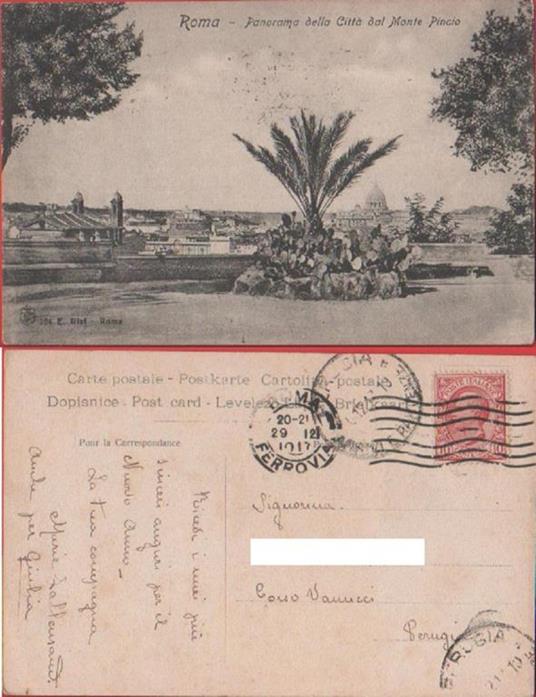 Roma - Panorama della Città dal Monte Pincio
104 E. Risi - Roma
Carte postale - Postkarte Cartolina postale
Dopisnice - Post card - Levelező
Pour la Correspondance
POSTE ITALIANE
ROMA
20-21
29 12
1917
FERROVIA
Ricevi i miei più
sinceri auguri per il
Nuovo Anno -
La tua compagna
Maria
anche per Giulia
Signorina
Corso Vannucci
Perugia
PERUGIA